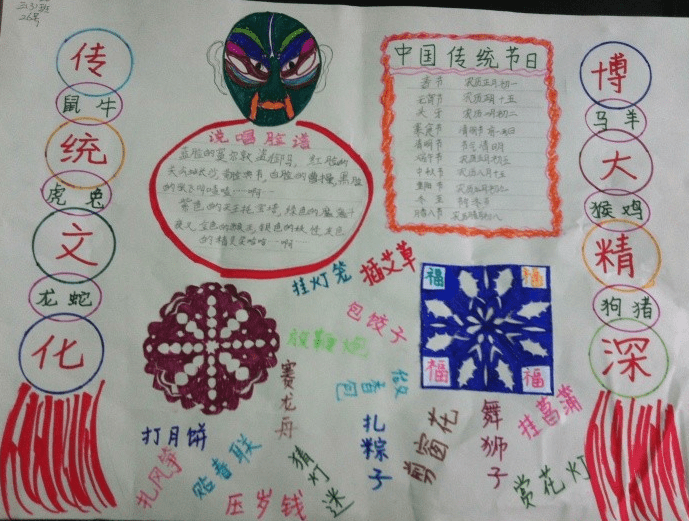 三(3)班
26号
传
鼠 牛
统
虎 兔
文
龙 蛇
化
说唱脸谱
蓝脸的窦尔敦盗御马,红脸的
关公战长沙,黄脸典韦,白脸的曹操,黑脸
的张飞叫喳喳……啊……
紫色的天王托宝塔,绿色的魔鬼斗
夜叉,金色的猴王,银色的妖怪,灰色
的精灵笑哈哈……啊……
中国传统节日
春节 农历正月初一
元宵节 农历正月十五
寒食节 清明节前一日
清明节
端午节 农历五月初五
中秋节 农历八月十五
重阳节 农历九月初九
冬至
腊八节 农历腊月初八
博
马 羊
大
猴 鸡
精
狗 猪
深
福 福
福 福
挂灯笼
插艾草
包饺子
放鞭炮
赛龙舟
香包
打月饼
扎风筝
贴春联
压岁钱
猜灯迷
扎粽子
剪窗花
舞狮子
挂菖蒲
赏花灯